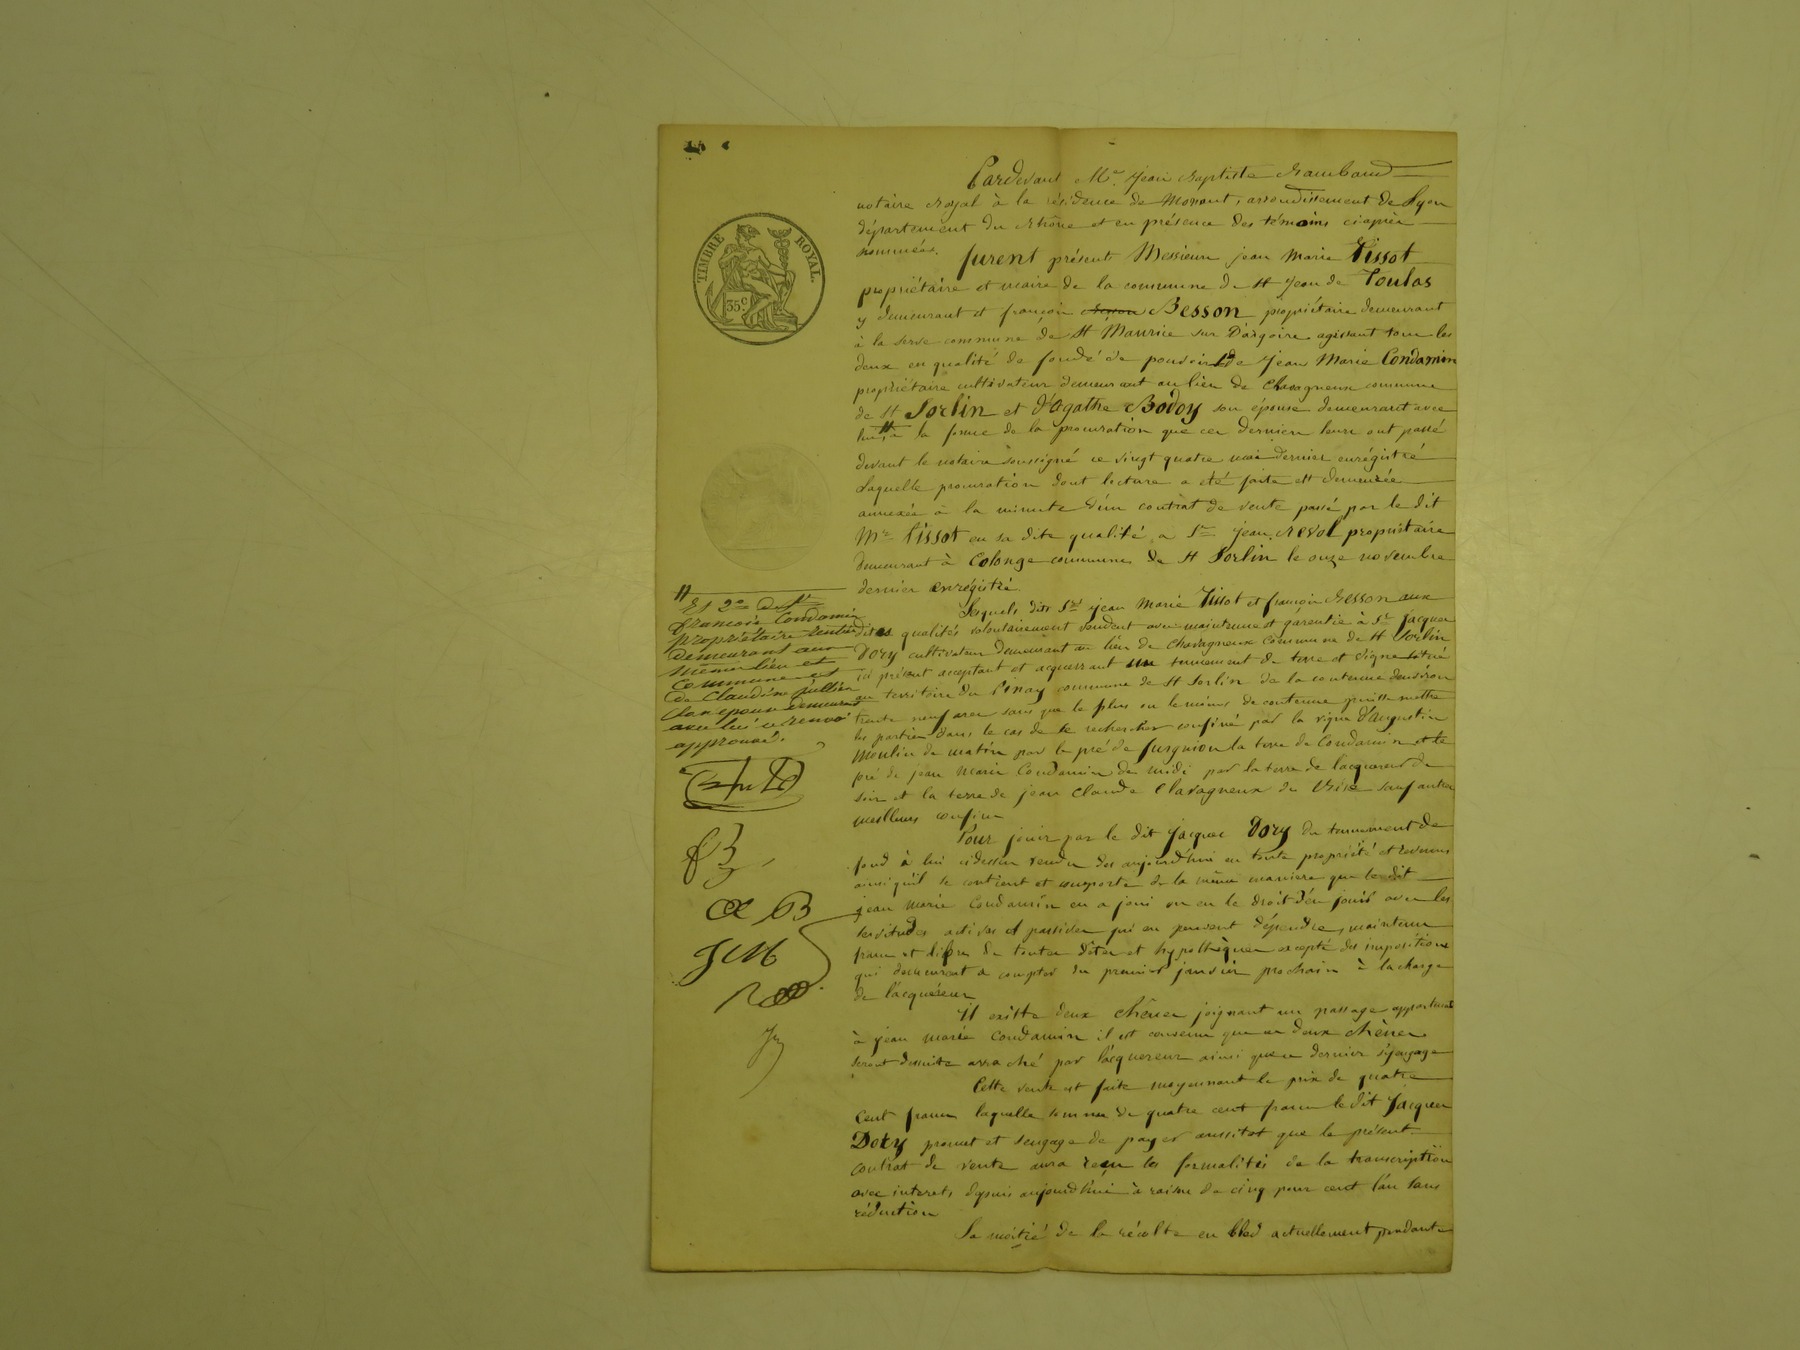 TIMBRE ROYAL.
35 c.
Pardevant Me. Jean Baptiste Rambaud
notaire Royal à la résidence de Mornant, arrondissement de Lyon
département du Rhône et en présence des témoins ciaprès
nommés. furent présent Messieurs jean Marie Tissot
propriétaire et maire de la commune de St Jean de Toulas
y demeurant et françois Besson propriétaire demeurant
à la serve commune de St Maurice sur Dargoire agissant tous les
deux en qualité de fondé de pouvoir 1o de Jean Marie Condamin
propriétaire cultivateur demeurant au lieu de Chavagneux commune
de St Sorlin et d'Agathe Bodoy son épouse demeurant avec
lui, # à la forme de la procuration que ces derniers leurs ont passé
devant le notaire soussigné ce vingt quatre mai dernier enrégistré
Laquelle procuration dont lecture a été faite est demeurée
annexée à la minute d'un contrat de vente passé par le dit
Mr Tissot en sa dite qualité a Sr jean Revol propriétaire
demeurant à Colonge commune de St Sorlin le onze novembre
dernier enrégistré
# Et 2o de Sr
françois Condamin
propriétaire rentier
demeurant aux
mêmes lieu et
commune et
de Claudine jullien
son epouse demeurant
avec lui ce renvoi
approuvé.
Lesquels dits Srs jean Marie Tissot et françois Besson aux
dites qualités volontairement vendent avec maintenue et garentie à Sr Jacques
Dory cultivateur demeurant au lieu de Chavagneux commune de St Sorlin
ici présent acceptant et acquerrant un tennement de terre et vigne situé
au territoire du Pinay commune de St Sorlin de la contenue denviron
trente neuf ares sans que le plus ou le moins de contenue puisse mettre
les parties dans le cas de se rechercher confiné par la vigne d'augustin
Moulin de matin par le pré de furgnion la terre de Condamin et le
pré de jean Marie Condamin de midi par la terre de lacquereur de
soir et la terre de jean Claude Chavagneux de Bise sauf autres
meilleurs confins
Pour jouir par le dit Jacques Dory du tennement de
fond à lui cidessus vendu des aujourd'hui en toute propriété et revenus
ainsi qu'il se contient et comporte de la même maniere que le dit
jean Marie Condamin en a joui ou eu le droit d'en jouir avec les
servitudes actives et passives qui en peuvent dépendre, maintenu
franc et libre de toutes dètes et hypothèques excepté des impositions
qui demeurent a compter du premier janvier prochain à la charge
de l'acquéreur
fB
CB
JCM
Il existe deux chênes joignant un passage appartenant
à jean Marie Condamin il est convenu que ces deux chènes
seront desuite arraché par lacquereur ainsi que ce dernier s'yengage
Cette vente est faite moyennant le prix de quatre
Cent francs laquelle somme de quatre cent francs le dit Jacques
Dory promet et sengage de payer aussitot que le présent
contrat de vente aura reçu les formalités de la transcription
avec interets depuis aujourd'hui à raison de cinq pour cent l'an sans
réduction
La moitié de la récolte en bled actuellement pendante